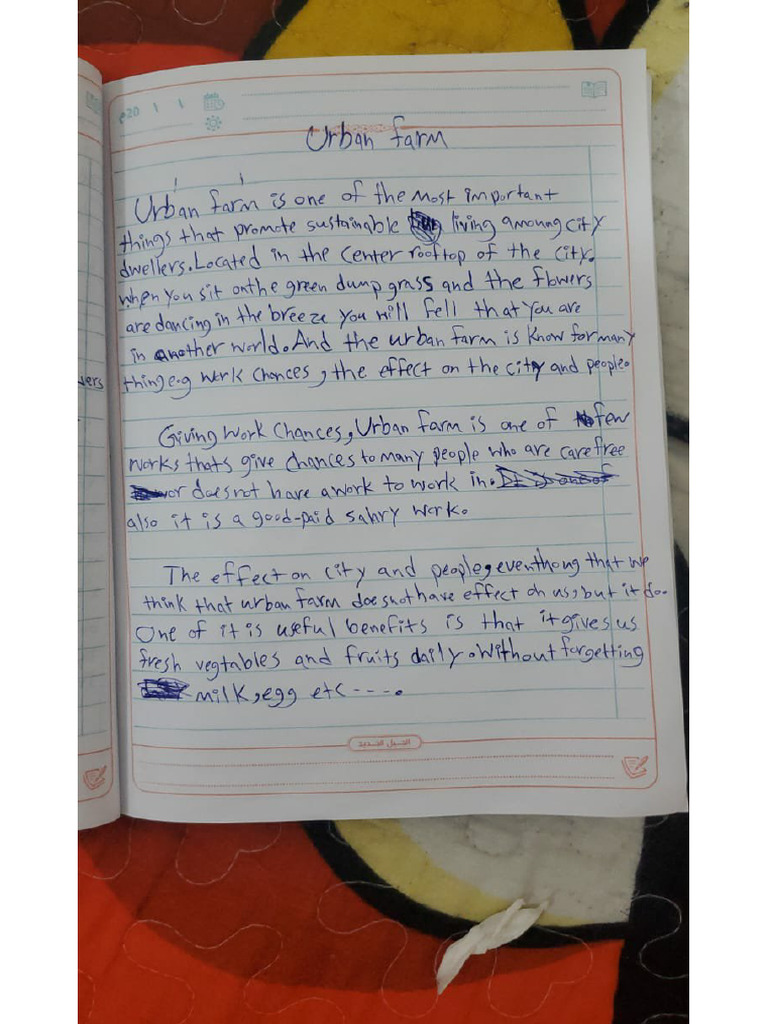 م20 / /
Urban farm
Urban farm is one of the most important
things that promote sustainable living amoung city
dwellers. Located in the center rooftop of the city.
when you sit on the green dump grass and the flowers
are dancing in the breeze you will fell that you are
in another world. And the urban farm is know for many
thing e.g werk chances, the effect on the city and people.
vers
Giving work chances, Urban farm is one of few
works thats give chances to many people who are care free
or does not have a work to work in.
also it is a good-paid salary work.
The effect on city and people, eventhoug that we
think that urban farm does not have effect on us, but it do.
One of it is useful benefits is that it gives us
fresh vegtables and fruits daily. Without forgetting
milk, egg etc ----.
الجيل الجديد